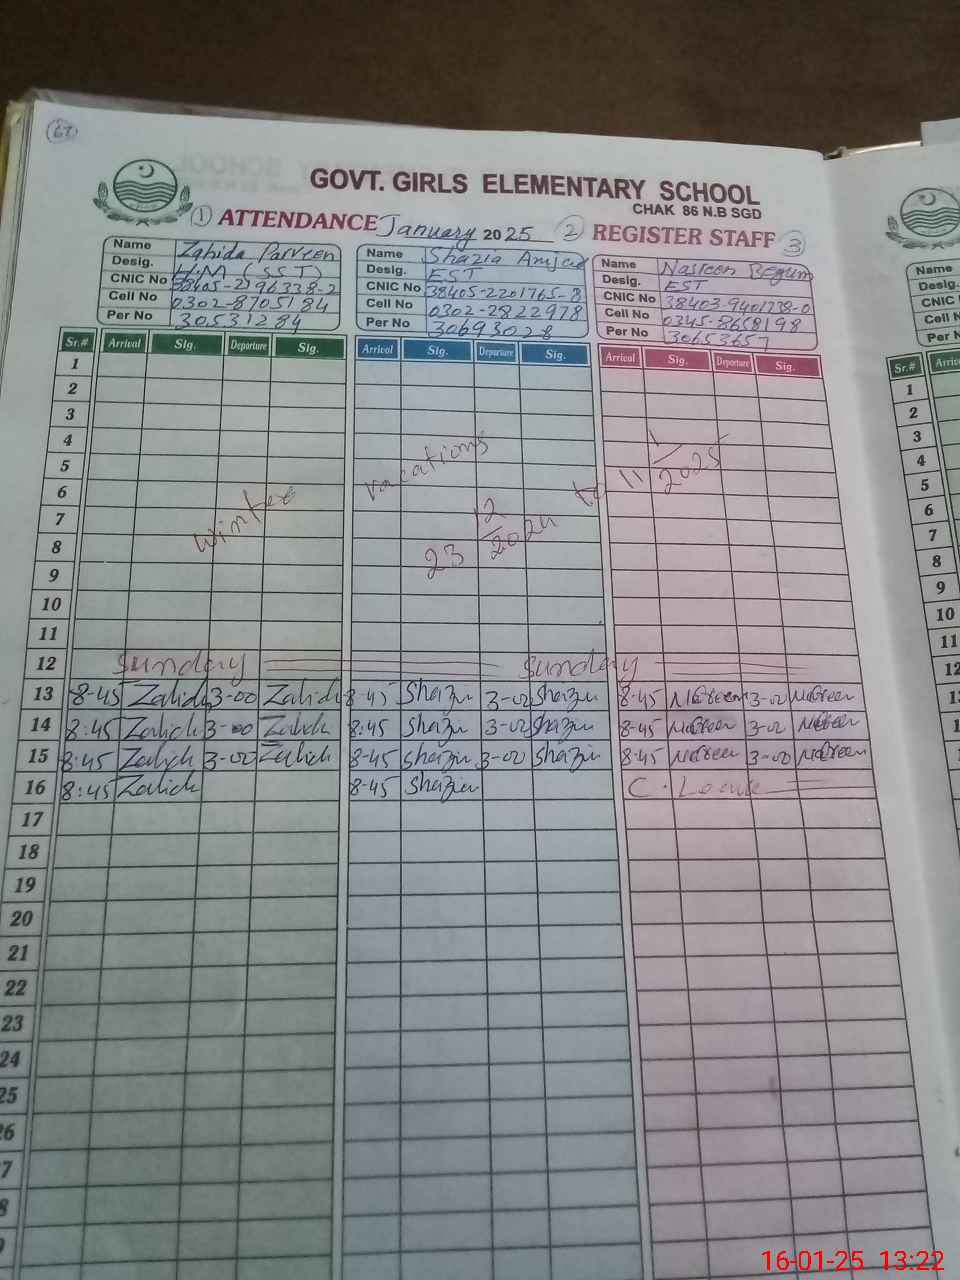 67
GOVT. GIRLS ELEMENTARY SCHOOL
CHAK 86 N.B SGD
① ATTENDANCE January 2025 ② REGISTER STAFF ③
Name Zahida Parveen Name Shazia Amjad Name Nasreen Begum
Desig. H/M (SST) Desig. EST Desig. EST
CNIC No 38405-2196338-2 CNIC No 38405-2201765-8 CNIC No 38403-9401738-0
Cell No 0302-8705184 Cell No 0302-2822978 Cell No 0345-8658198
Per No 30531284 Per No 30693028 Per No 30653657
Sr.# Arrival Sig. Departure Sig. Arrival Sig. Departure Sig. Arrival Sig. Departure Sig.
1
2
3
4
5
6
7
8
9
10
11
winter vacations 23 12/2024 to 11 1/2025
12 Sunday Sunday
13 8-45 Zahida 3-00 Zahida 8-45 Shazia 3-00 Shazia 8-45 3-00
14 8:45 Zahida 3-00 Zahida 8:45 Shazia 3-00 Shazia 8-45 3-00
15 8:45 Zahida 3-00 Zahida 8-45 Shazia 3-00 Shazia 8-45 3-00
16 8:45 Zahida 8-45 Shazia C. Leave
17
18
19
20
21
22
23
24
25
26
7
8
Name
Desig.
CNIC
Cell N
Per N
Sr.# Arriv
1
2
3
4
5
6
7
8
9
10
11
12
13
1
1
16-01-25 13:22